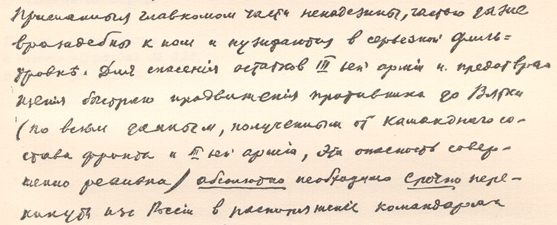 Присланныя главкомом части ненадежны, частью даже
враждебны к нам и нуждаются в серьезной филь-
тровке. Для спасенія остатков III-ей арміи и предотвра-
щения быстраго продвиженія противника до Вятки
(по всем данным, полученным от командного со-
става фронта и III-ей арміи, эта опасность совер-
шенно реальна) абсолютно необходимо срочно пере-
кинуть из Россіи в распоряженіе командарма